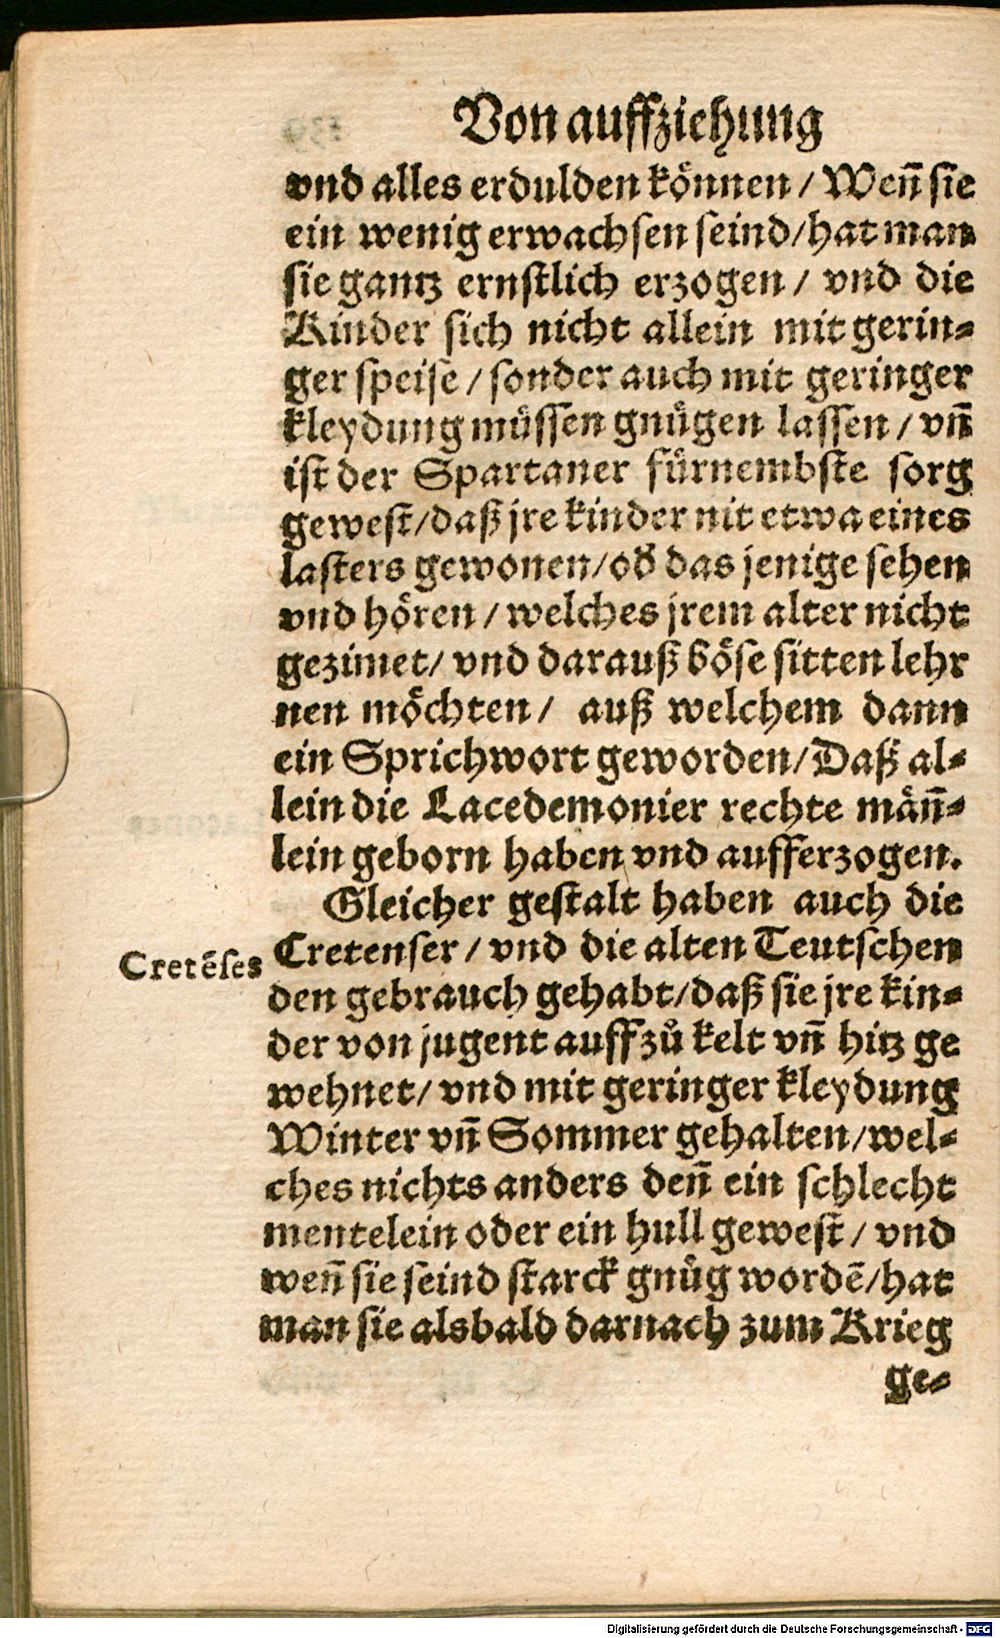 Von auffziehung
vnd alles erdulden können / Wen̄ sie
ein wenig erwachsen seind/hat man
sie gantz ernstlich erzogen / vnd die
Kinder sich nicht allein mit gerin⸗
ger speise / sonder auch mit geringer
kleydung müssen gnügen lassen / vn̄
ist der Spartaner fürnembste sorg
gewest/daß jre kinder nit etwa eines
lasters gewonen/od̕ das jenige sehen
vnd hören / welches jrem alter nicht
gezimet/ vnd darauß böse sitten lehr
nen möchten / auß welchem dann
ein Sprichwort geworden/Daß al⸗
lein die Lacedemonier rechte män̄⸗
lein geborn haben vnd aufferzogen.
Gleicher gestalt haben auch die
Cretēses
Cretenser / vnd die alten Teutschen
den gebrauch gehabt/daß sie jre kin⸗
der von jugent auff zů kelt vn̄ hitz ge
wehnet/ vnd mit geringer kleydung
Winter vn̄ Sommer gehalten/wel⸗
ches nichts anders den̄ ein schlecht
mentelein oder ein hull gewest / vnd
wen̄ sie seind starck gnüg wordē/hat
man sie alsbald darnach zum Krieg
ge⸗
Digitalisierung gefördert durch die Deutsche Forschungsgemeinschaft - DFG